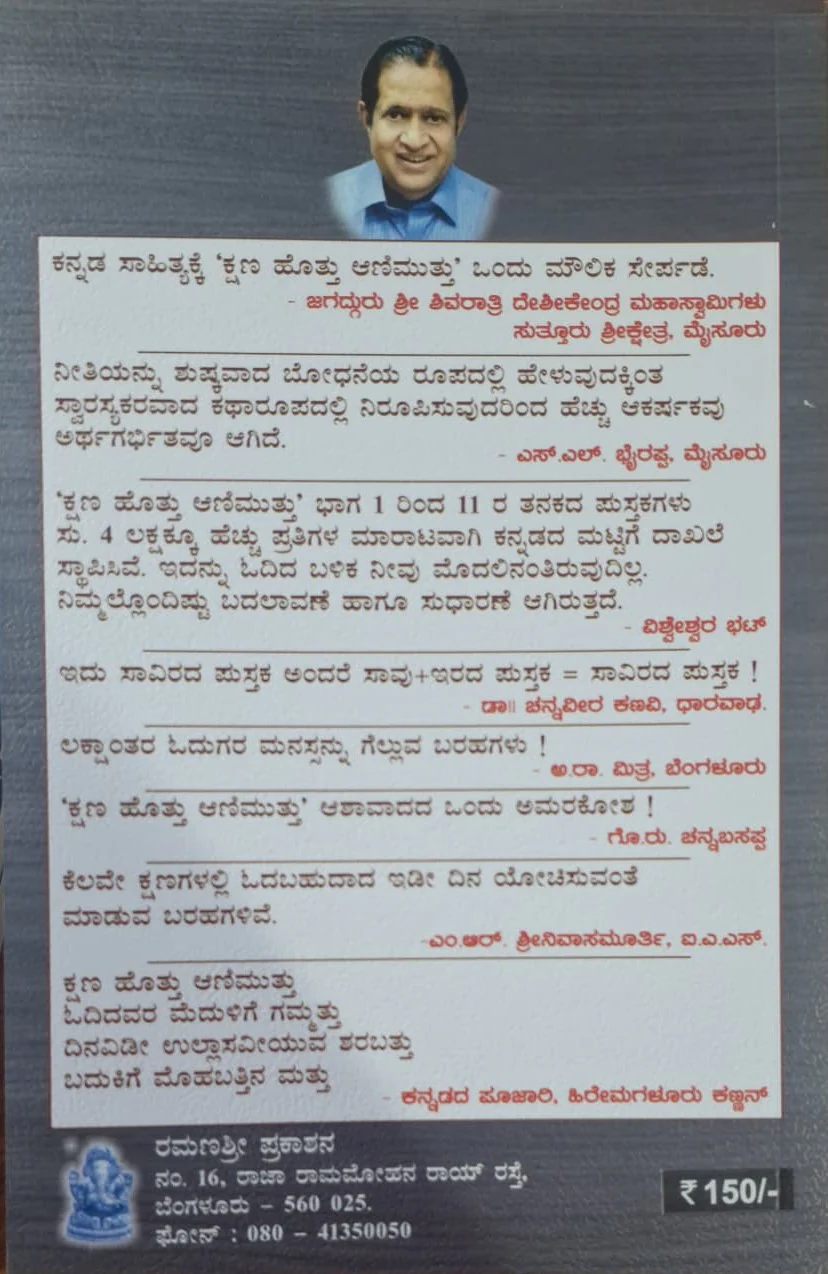 ಕನ್ನಡ ಸಾಹಿತ್ಯಕ್ಕೆ ‘ಕ್ಷಣ ಹೊತ್ತು ಆಣಿಮುತ್ತು’ ಒಂದು ಮೌಲಿಕ ಸೇರ್ಪಡೆ.
- ಜಗದ್ಗುರು ಶ್ರೀ ಶಿವರಾತ್ರಿ ದೇಶೀಕೇಂದ್ರ ಮಹಾಸ್ವಾಮಿಗಳು
ಸುತ್ತೂರು ಶ್ರೀಕ್ಷೇತ್ರ, ಮೈಸೂರು
ನೀತಿಯನ್ನು ಶುಷ್ಕವಾದ ಬೋಧನೆಯ ರೂಪದಲ್ಲಿ ಹೇಳುವುದಕ್ಕಿಂತ
ಸ್ವಾರಸ್ಯಕರವಾದ ಕಥಾರೂಪದಲ್ಲಿ ನಿರೂಪಿಸುವುದರಿಂದ ಹೆಚ್ಚು ಆಕರ್ಷಕವು
ಅರ್ಥಗರ್ಭಿತವೂ ಆಗಿದೆ.
- ಎಸ್.ಎಲ್. ಭೈರಪ್ಪ, ಮೈಸೂರು
‘ಕ್ಷಣ ಹೊತ್ತು ಆಣಿಮುತ್ತು’ ಭಾಗ 1 ರಿಂದ 11 ರ ತನಕದ ಪುಸ್ತಕಗಳು
ಸು. 4 ಲಕ್ಷಕ್ಕೂ ಹೆಚ್ಚು ಪ್ರತಿಗಳ ಮಾರಾಟವಾಗಿ ಕನ್ನಡದ ಮಟ್ಟಿಗೆ ದಾಖಲೆ
ಸ್ಥಾಪಿಸಿವೆ. ಇದನ್ನು ಓದಿದ ಬಳಿಕ ನೀವು ಮೊದಲಿನಂತಿರುವುದಿಲ್ಲ.
ನಿಮ್ಮಲ್ಲೊಂದಿಷ್ಟು ಬದಲಾವಣೆ ಹಾಗೂ ಸುಧಾರಣೆ ಆಗಿರುತ್ತದೆ.
- ವಿಶ್ವೇಶ್ವರ ಭಟ್
ಇದು ಸಾವಿರದ ಪುಸ್ತಕ ಅಂದರೆ ಸಾವು+ಇರದ ಪುಸ್ತಕ = ಸಾವಿರದ ಪುಸ್ತಕ !
- ಡಾ|| ಚನ್ನವೀರ ಕಣವಿ, ಧಾರವಾಢ.
ಲಕ್ಷಾಂತರ ಓದುಗರ ಮನಸ್ಸನ್ನು ಗೆಲ್ಲುವ ಬರಹಗಳು !
- ಅ.ರಾ. ಮಿತ್ರ, ಬೆಂಗಳೂರು
‘ಕ್ಷಣ ಹೊತ್ತು ಆಣಿಮುತ್ತು’ ಆಶಾವಾದದ ಒಂದು ಅಮರಕೋಶ !
- ಗೊ.ರು. ಚನ್ನಬಸಪ್ಪ
ಕೆಲವೇ ಕ್ಷಣಗಳಲ್ಲಿ ಓದಬಹುದಾದ ಇಡೀ ದಿನ ಯೋಚಿಸುವಂತೆ
ಮಾಡುವ ಬರಹಗಳಿವೆ.
-ಎಂ.ಆರ್. ಶ್ರೀನಿವಾಸಮೂರ್ತಿ, ಐ.ಎ.ಎಸ್.
ಕ್ಷಣ ಹೊತ್ತು ಆಣಿಮುತ್ತು
ಓದಿದವರ ಮೆದುಳಿಗೆ ಗಮ್ಮತ್ತು
ದಿನವಿಡೀ ಉಲ್ಲಾಸವೀಯುವ ಶರಬತ್ತು
ಬದುಕಿಗೆ ಮೊಹಬತ್ತಿನ ಮತ್ತು
- ಕನ್ನಡದ ಪೂಜಾರಿ, ಹಿರೇಮಗಳೂರು ಕಣ್ಣನ್
ರಮಣಶ್ರೀ ಪ್ರಕಾಶನ
ನಂ. 16, ರಾಜಾ ರಾಮಮೋಹನ ರಾಯ್ ರಸ್ತೆ,
ಬೆಂಗಳೂರು – 560 025.
ಫೋನ್ : 080 – 41350050
₹ 150/-